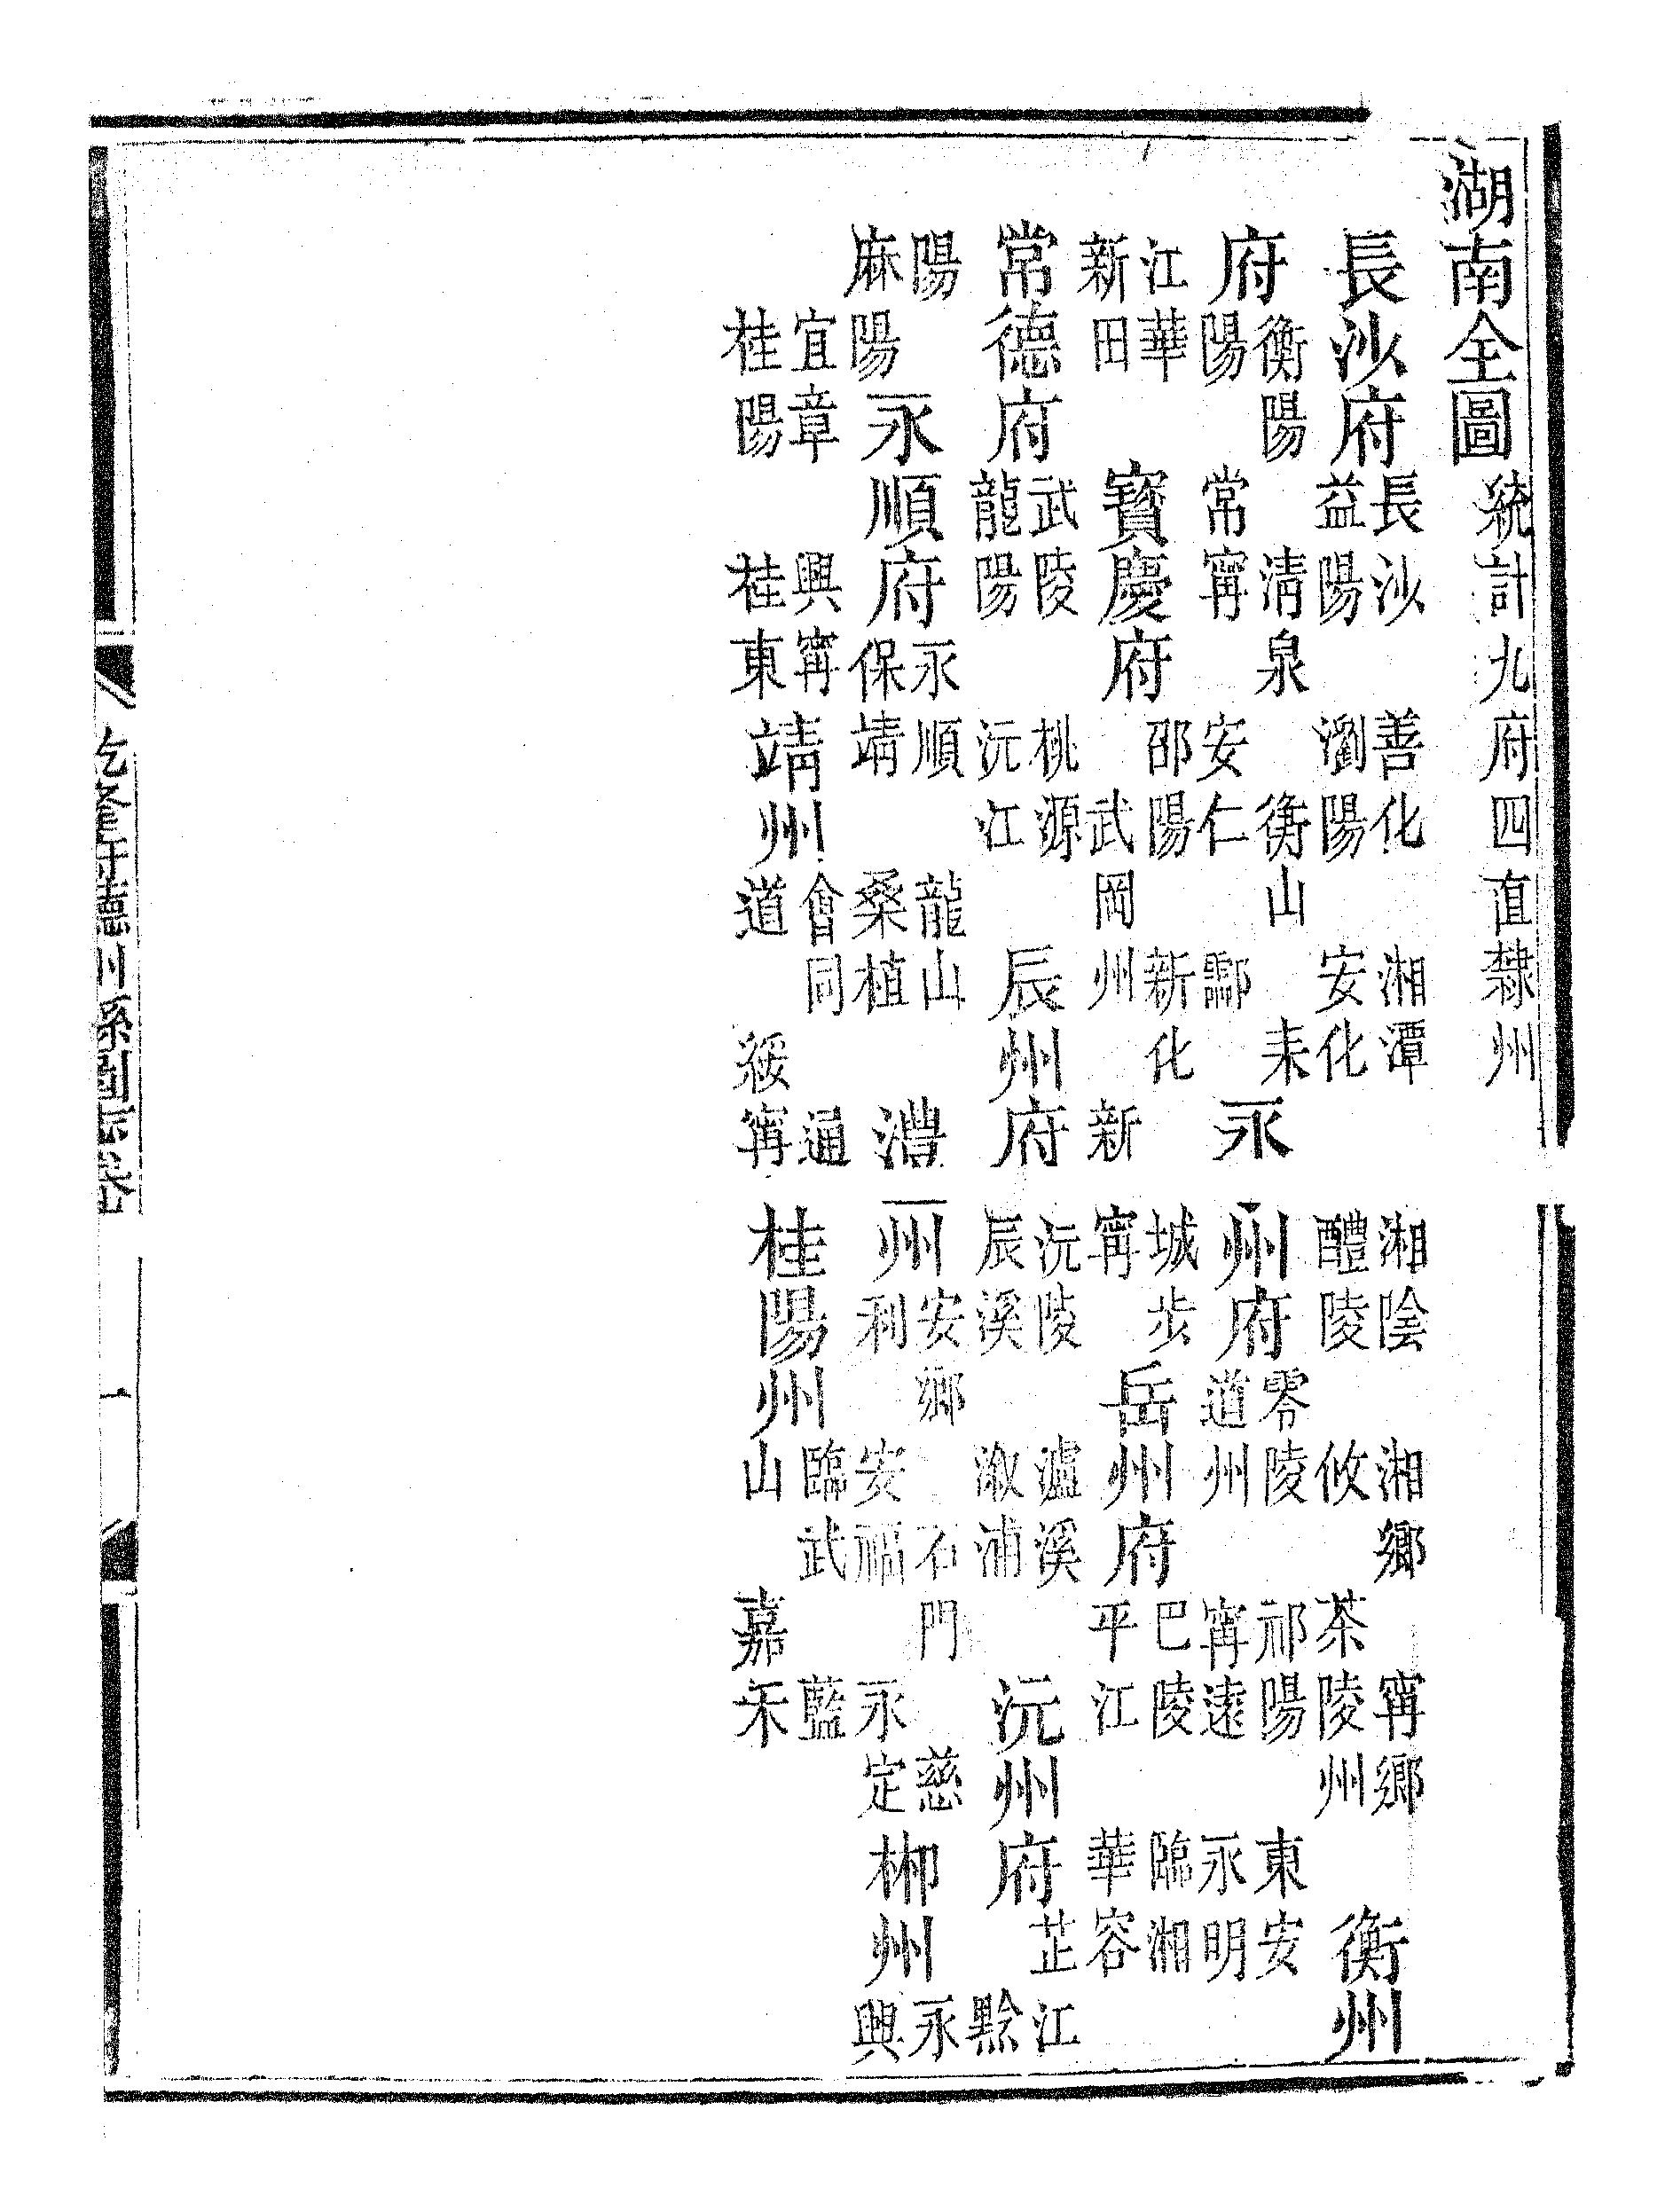 湖南全圖 統計九府四直隸州
長沙府 長沙 善化 湘潭 湘陰 湘鄉 甯鄉
益陽 瀏陽 安化 醴陵 攸 茶陵州 衡州
府 衡陽 清泉 衡山 耒
陽 常甯 安仁 酃 永州府 零陵 祁陽 東安
道州 甯遠 永明
江華
新田 寶慶府 邵陽 新化 城步
武岡州 新甯 岳州府 巴陵 臨湘
平江 華容
常德府 武陵 桃源
龍陽 沅江 辰州府 沅陵 瀘溪
辰溪 溆浦 沅州府 芷江
黔
陽
麻陽 永順府 永順 龍山
保靖 桑植 澧州 安鄉 石門 慈
利 安福 永定 郴州 永
興
宜章 興甯
桂陽 桂東 靖州 會同 通
道 綏甯 桂陽州 臨武 藍
山 嘉禾
一